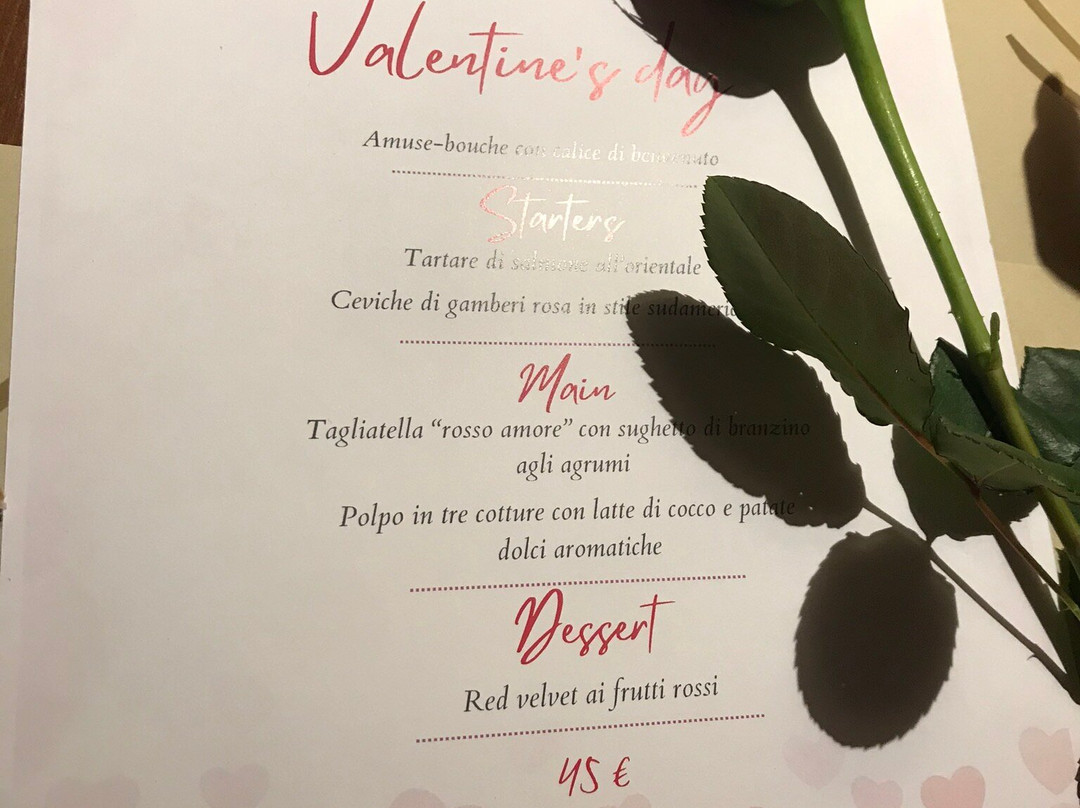 Valentine's day
Amuse-bouche con calice di benvenuto
Starters
Tartare di salmone all'orientale
Ceviche di gamberi rosa in stile
Main
Tagliatella “rosso amore” con sughetto di branzino
agli agrumi
Polpo in tre cotture con latte di cocco e patate
dolci aromatiche
Dessert
Red velvet ai frutti rossi
45 €